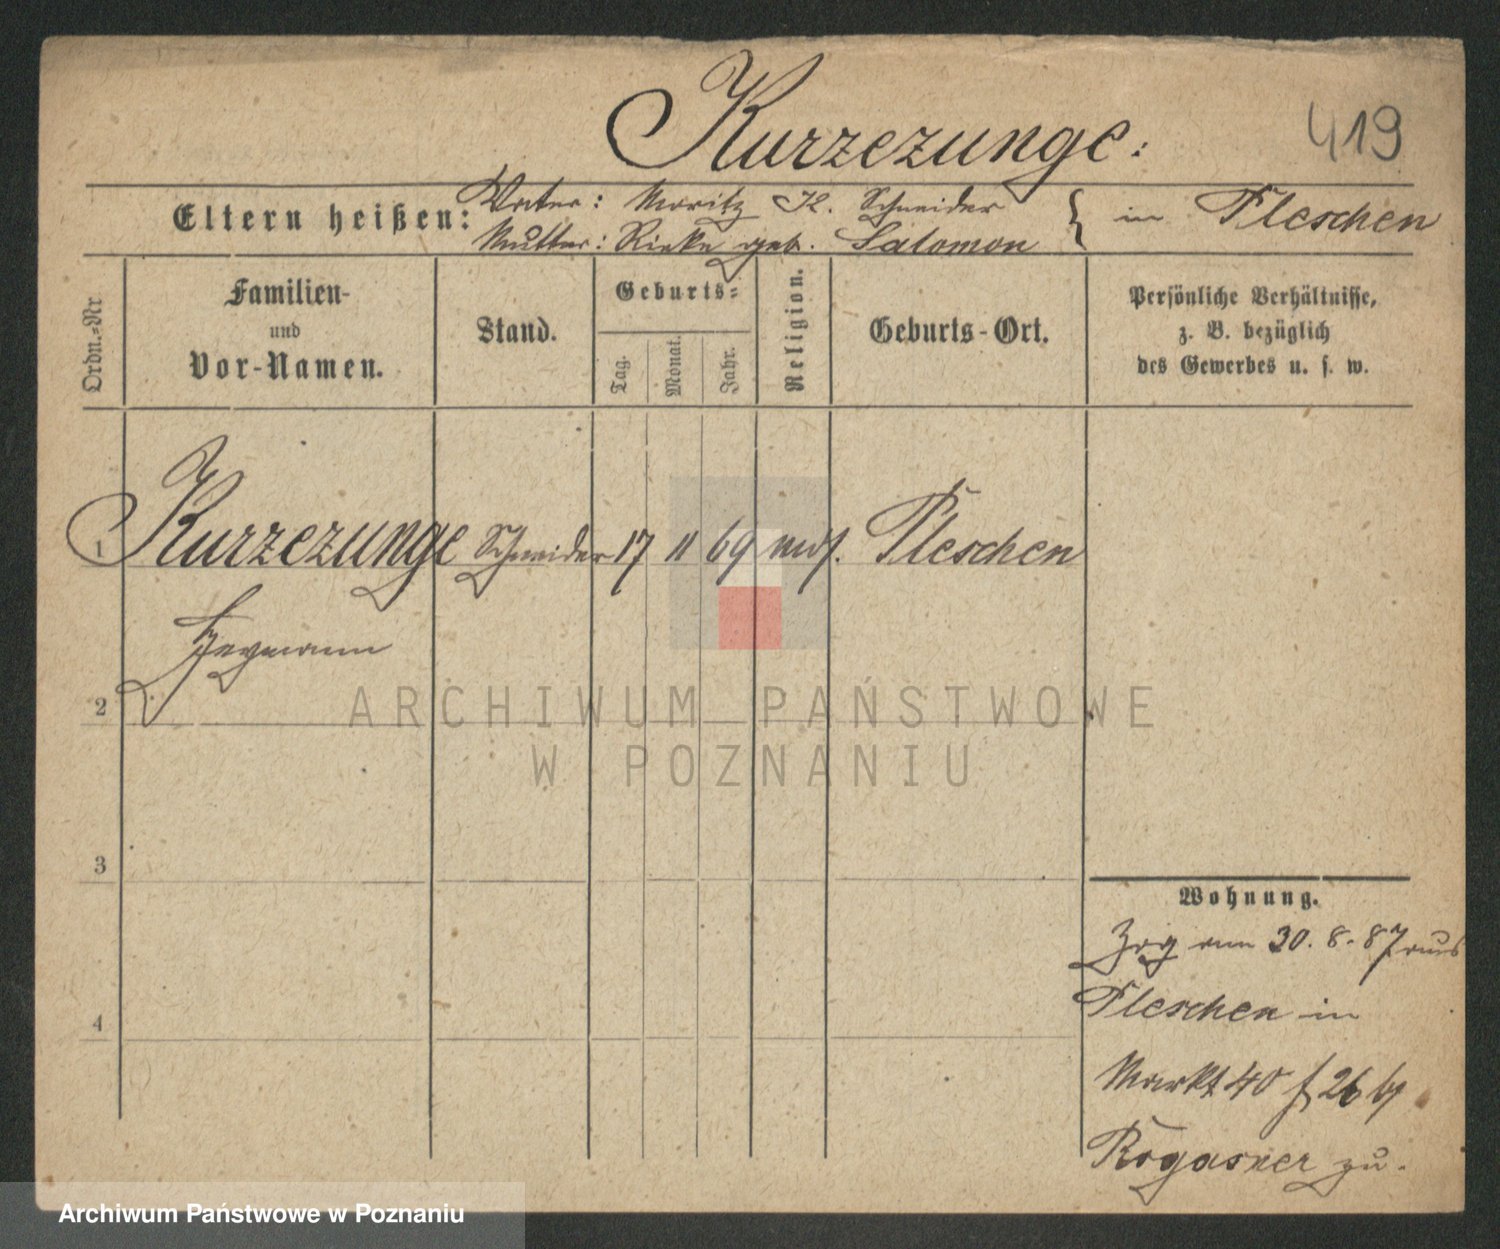 Kurzezunge:
419
Eltern heißen:
Vater: Moritz K. Schneider
Mutter: Rieke geb. Salomon
} in Pleschen
Ordn.-Nr
Familien-
und
Vor-Namen.
Stand.
Geburts-
Tag.
Monat.
Jahr.
Religion.
Geburts-Ort.
Persönliche Verhältnisse,
z. B. bezüglich
des Gewerbes u. s. w.
1 Kurzezunge Schneider 17 11 69 mos. Pleschen
Heymann
2
3
4
Wohnung.
Zog am 30. 8. 87 aus
Pleschen in
Markt 40 f 26
Rogasner zu.
ARCHIWUM PAŃSTWOWE
W POZNANIU
Archiwum Państwowe w Poznaniu